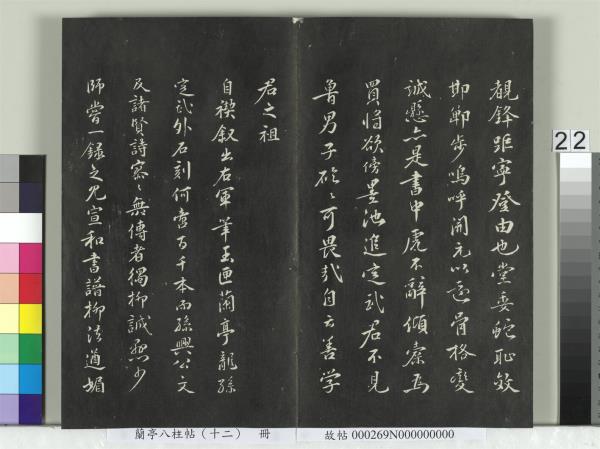 覩鋒距寧登由也堂委蛇恥效
邯鄲步嗚呼開元以還骨格變
誠懸亦是書中虎不辭傾橐為
買將欲傍墨池進定武君不見
魯男子可畏哉自云善学
君之祖
自禊叙出右軍筆玉匣蘭亭龍孫
定武外石刻何啻百千本而孫興公文
及諸賢詩寥〻無傳者獨柳誠懸少
師嘗一錄之見宣和書譜柳法遒媚
22
蘭亭八柱帖（十二） 冊
故帖 000269N000000000